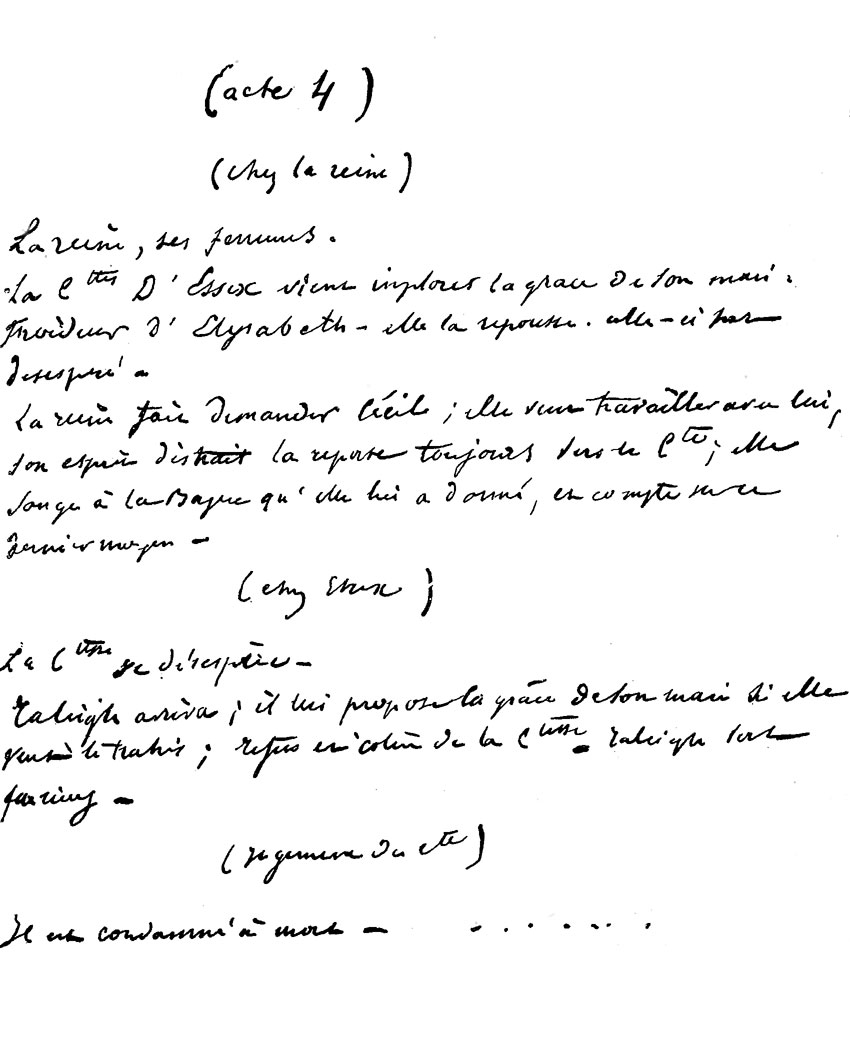 (acte 4)
(chez la reine)
La reine, ses femmes.
La Ctesse D'Essex vient implorer la grace de son mari.
froideur d'Elysabeth - elle la repousse. celle-ci part
desesperé -
La reine fait demander Cécile ; elle veut travailler avec lui,
son esprit distrait la reporte toujours vers le Cte ; elle
songe à la Bague qu'elle lui a donné, et compte sur ce
dernier moyen -
(chez Essex)
La Ctesse se désespère -
Raleigh arriva ; il lui propose la grâce de son mari si elle
veut le trahir ; refus et colère de la Ctesse - Raleigh sort
furieux -
(jugement du cte)
Il est condamné à mort - . . . . . . .